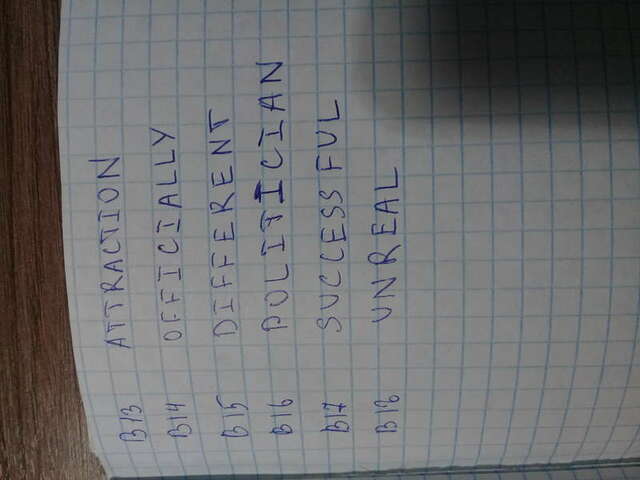 B13 ATTRACTION
B14 OFFICIALLY
B15 DIFFERENT
B16 POLITICIAN
B17 SUCCESSFUL
B18 UNREAL